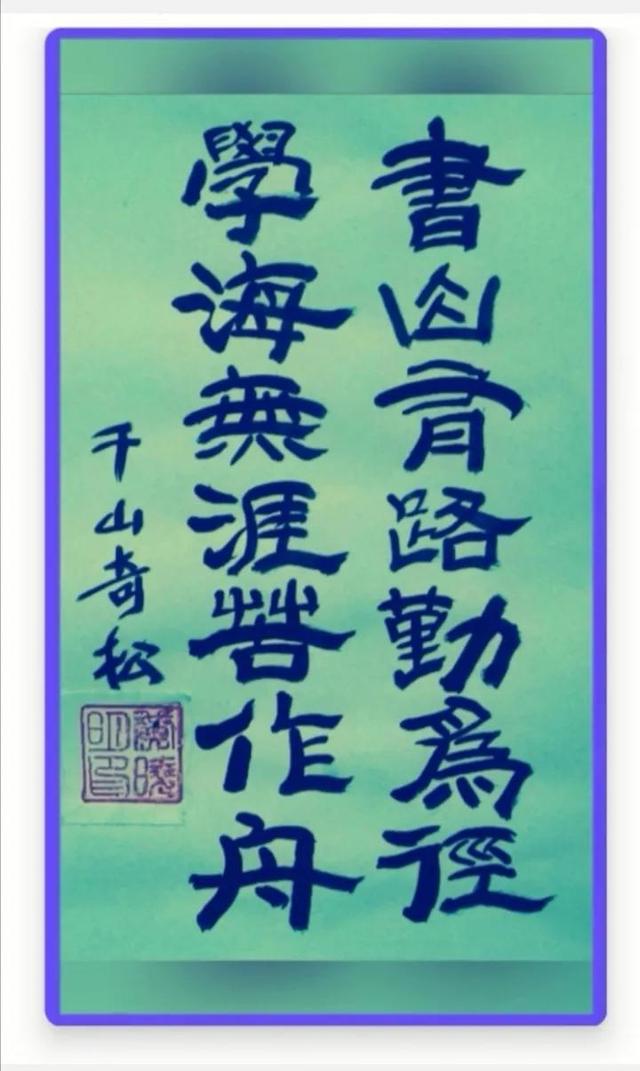 書山有路勤為徑
學海無涯苦作舟
千山奇松